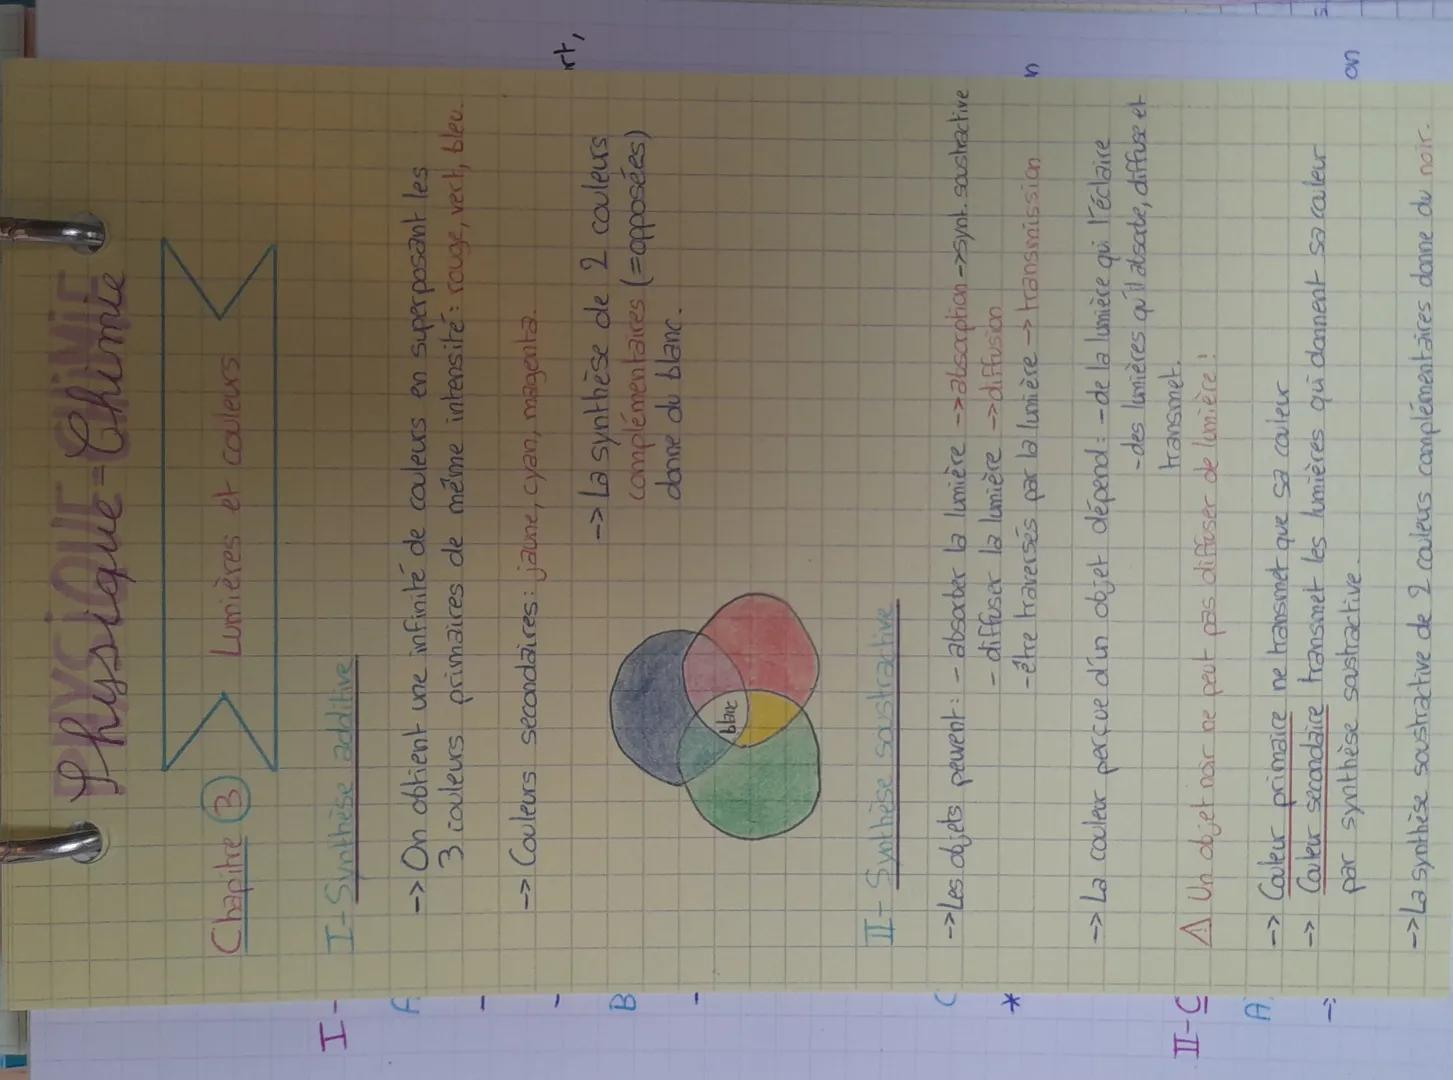 PHYSIQUE CHIMIE
Physique-Chimie
Chapitre 3 Lumières et couleurs
I- Synthèse additive
-> On obtient une infinité de couleurs en superposant les
3 couleurs primaires de même intensité: rouge, vert, bleu.
-> Couleurs secondaires: jaune, cyan, magenta.
-> La synthèse de 2 couleurs
complémentaires (=opposées)
donne du blanc.
blanc
II- Synthèse soustractive
-> Les objets peuvent: - absorber la lumière -> absorption -> synt. soustractive
- diffuser la lumière -> diffusion
- être traversés par la lumière -> transmission
-> La couleur perçue d'un objet dépend: - de la lumière qui l'éclaire
- des lumières qu'il absorbe, diffuse et
transmet.
⚠ Un objet noir ne peut pas diffuser de lumière!
-> Couleur primaire ne transmet que sa couleur
-> Couleur secondaire transmet les lumières qui donnent sa couleur
par synthèse soustractive.
-> La synthèse soustractive de 2 couleurs complémentaires donne du noir.
I-
A
-
-
B
-
C
*
II-C
A
rt,
n
on